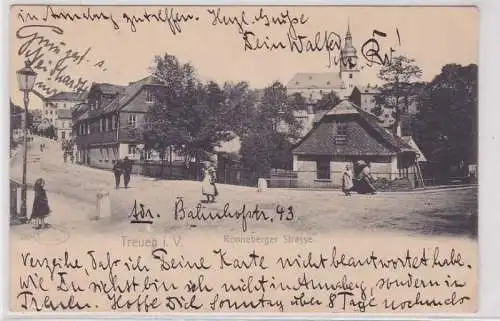 in Annaberg zutreffen. Herzl. Grüße
Dein Walter
Adr. Bahnhofstr. 93.
Treuen i. V.
Ronneberger Strasse.
Verzeihe, daß ich Deine Karte nicht beantwortet habe.
Wie Du siehst bin ich nicht in Annaberg, sondern in
Treuen. Hoffe Dich Sonntag über 8 Tage nochmals